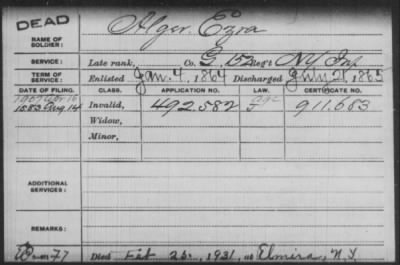 DEAD
NAME OF SOLDIER: Alger, Ezra
SERVICE: Late rank, Co. G, 152 Regt NY Inf
TERM OF SERVICE: Enlisted Jan. 4, 1864 Discharged July 21, 1865
DATE OF FILING. CLASS. APPLICATION NO. LAW. CERTIFICATE NO.
1907 Apr 16
1883 Aug. 14 Invalid, 492.582 911.683
Widow,
Minor,
ADDITIONAL SERVICES:
REMARKS:
Died Feb 25, 1931, at Elmira, N.Y.